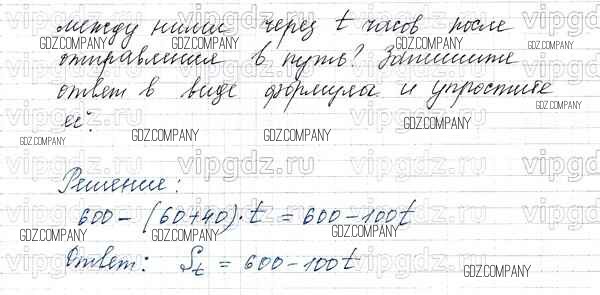 между ними через t часов после
отправления в путь? Запишите
ответ в виде формулы и упростите
её.
Решение:
600 – (60+40)·t = 600 – 100t
Ответ: St = 600 – 100t